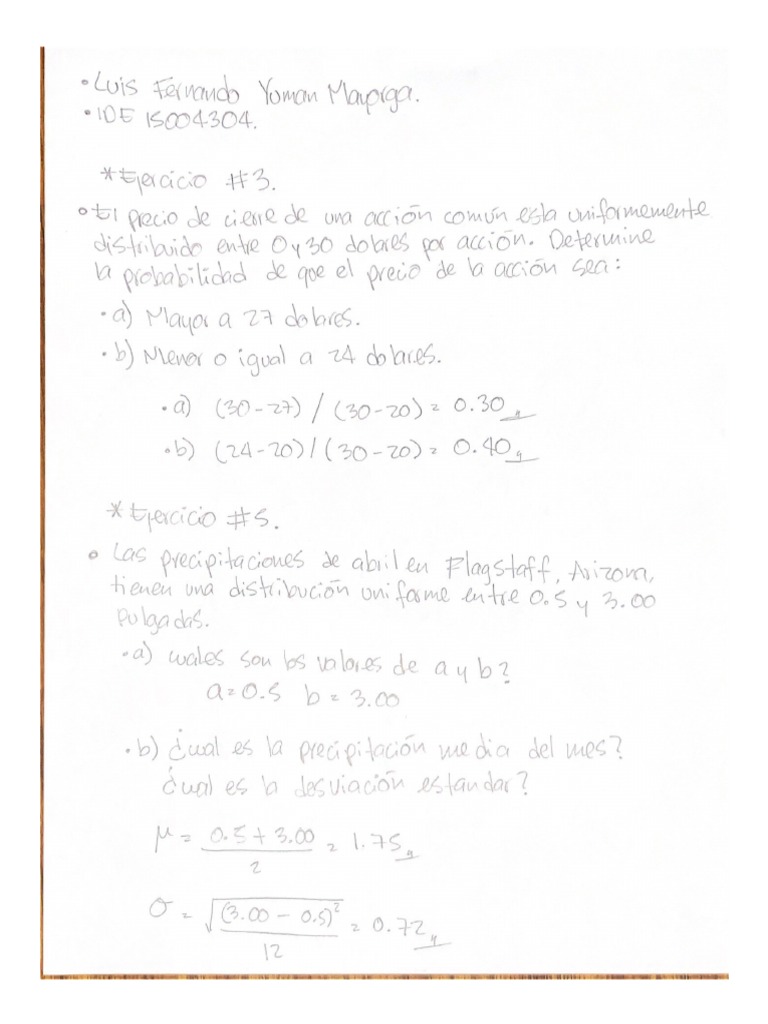 • Luis Fernando Yuman Mayorga.
• IDE 15004304.
* Ejercicio #3.
• El precio de cierre de una acción común esta uniformemente
distribuido entre 0 y 30 dolares por acción. Determine
la probabilidad de que el precio de la acción sea:
• a) Mayor a 27 dolares.
• b) Menor o igual a 24 dolares.
• a) (30-27) / (30-20) = 0.30
• b) (24-20) / (30-20) = 0.40
* Ejercicio #5.
• Las precipitaciones de abril en Flagstaff, Arizona,
tienen una distribución uniforme entre 0.5 y 3.00
pulgadas.
• a) cuales son los valores de a y b?
a = 0.5 b = 3.00
• b) ¿cual es la precipitación media del mes?
¿cual es la desviación estandar?
μ = 0.5 + 3.00 / 2 = 1.75
σ = √(3.00 - 0.5)² / 12 = 0.72